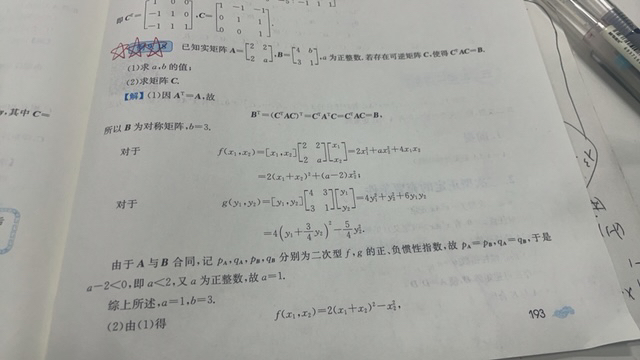 即 C^T = [1 0 0; -1 1 0; -1 1 1], C = [1 -1 -1; 0 1 1; 0 0 1].
已知实矩阵 A = [2 2; 2 a], B = [4 b; 3 1], a 为正整数. 若存在可逆矩阵 C, 使得 C^T AC = B.
(1)求 a, b 的值;
(2)求矩阵 C.
【解】(1)因 A^T = A, 故
B^T = (C^T AC)^T = C^T A^T C = C^T AC = B,
所以 B 为对称矩阵, b=3.
对于 f(x₁, x₂) = [x₁, x₂][2 2; 2 a][x₁; x₂] = 2x₁² + ax₂² + 4x₁x₂
= 2(x₁+x₂)² + (a-2)x₂²;
对于 g(y₁, y₂) = [y₁, y₂][4 3; 3 1][y₁; y₂] = 4y₁² + y₂² + 6y₁y₂
= 4(y₁ + 3/4 y₂)² - 5/4 y₂².
由于 A 与 B 合同, 记 p_A, q_A, p_B, q_B 分别为二次型 f, g 的正、负惯性指数, 故 p_A = p_B, q_A = q_B, 于是
a-2<0, 即 a<2, 又 a 为正整数, 故 a=1.
综上所述, a=1, b=3.
(2)由(1)得
f(x₁, x₂) = 2(x₁+x₂)² - x₂²,
193
, 其中 C=